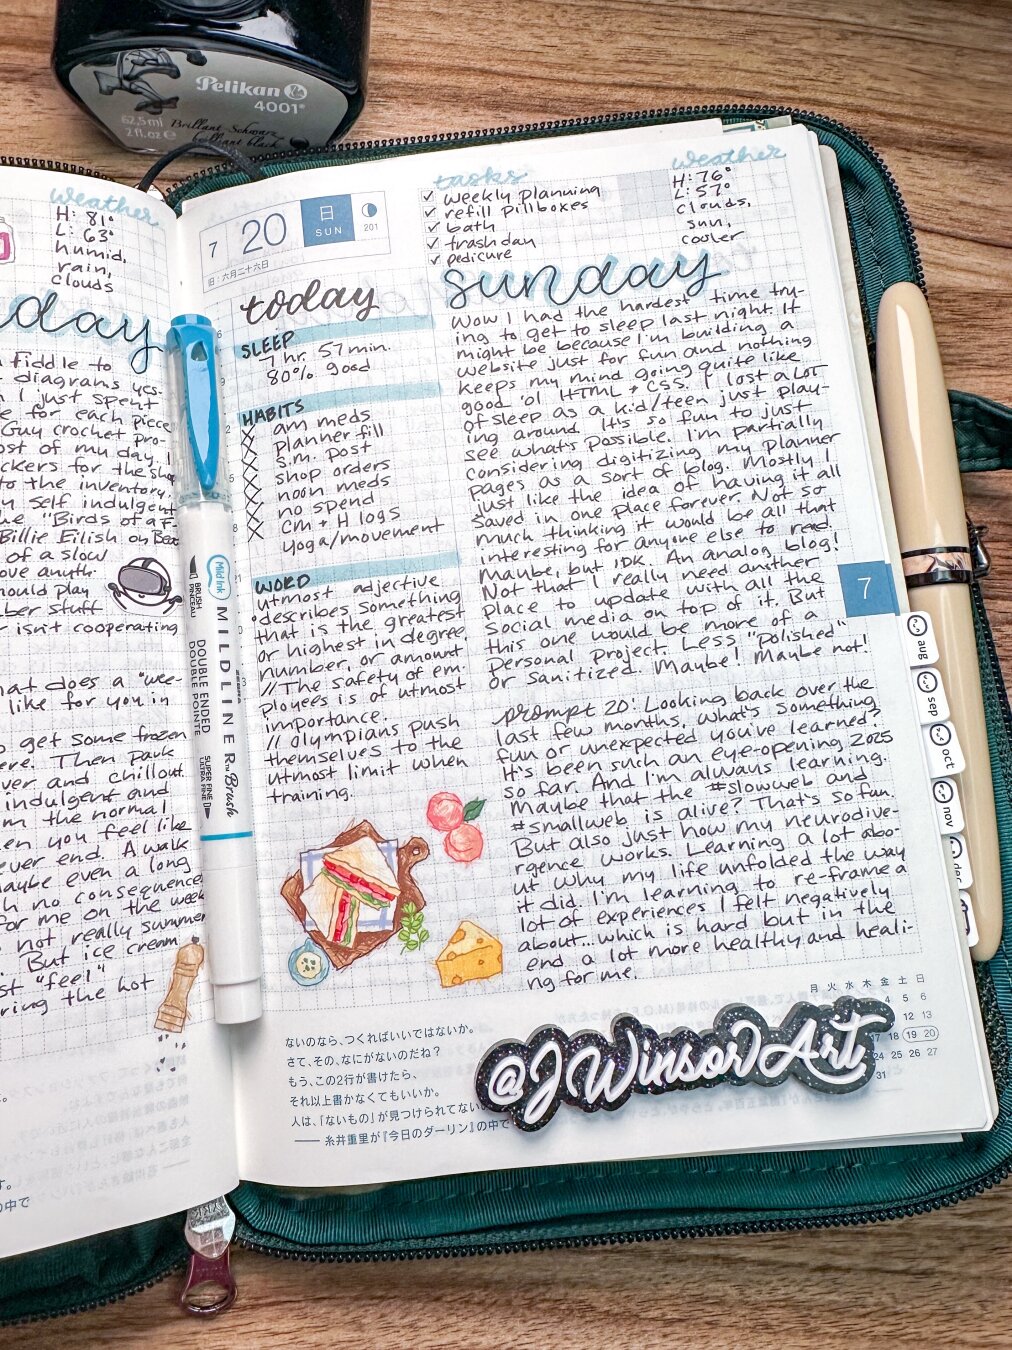 Pelikan
4001
62,5 ml
2 fl.oz
Brillant-Schwarz
brilliant black
weather
H: 81°
L: 63°
humid,
rain,
clouds
day
fiddle to
diagrams yes-
I just spent
for each piece
Guy crochet pro-
ost of my day, I
ckers for the
to the inventory.
y self indulgent
"Birds of a F-
Billie Eilish on Beat
of a slow
ove anyth-
hould play
ber stuff
isn't cooperating
hat does a "wee-
like for you in
get some frozen
ere. Then park
ver and chillout.
indulgent and
m the normal
en you feel like
ever end. A walk
aybe even a long
h no consequence
for me on the week
not really summer
. But ice cream
st "feel"
ring the hot
す。
の中で
Mild Ink
MILDLINER Brush
BRUSH
PINCEAU
DOUBLE ENDED
DOUBLE POINTE
SUPER FINE
ULTRA FINE
7 20 日 SUN 201
旧・六月二十六日
tasks
✓ weekly planning
✓ refill pillboxes
✓ bath
✓ trash day
✓ pedicure
weather
H: 76°
L: 57°
clouds,
sun,
cooler
today
SLEEP
7 hr. 57 min.
80% good
HABITS
am meds
planner fill
s.m. post
shop orders
noon meds
no spend
cm + H logs
yoga/movement
WORD
utmost adjective
• describes something
that is the greatest
or highest in degree,
number, or amount
// The safety of em-
ployees is of utmost
importance.
// Olympians push
themselves to the
utmost limit when
training.
sunday
Wow I had the hardest time try-
ing to get to sleep last night. It
might be because I'm building a
website just for fun and nothing
keeps my mind going quite like
good 'ol HTML + CSS. I lost a lot
of sleep as a kid/teen just play-
ing around. It's so fun to just
see what's possible. I'm partially
considering digitizing my planner
pages as a sort of blog. Mostly I
just like the idea of having it all
saved in one place forever. Not so
much thinking it would be all that
interesting for anyone else to read.
Maybe, but IDK. An analog blog!
Not that I really need another
place to update with all the
social media on top of it. But
this one would be more of a
personal project. Less "polished"
or sanitized. Maybe! Maybe not!
prompt 20: Looking back over the
last few months, what's something
fun or unexpected you've learned?
It's been such an eye-opening 2025
so far. And I'm always learning.
Maybe that the #slowweb and
#smallweb is alive? That's so fun.
But also just how my neurodive-
rgence works. Learning a lot abo-
ut why my life unfolded the way
it did. I'm learning to re-frame a
lot of experiences I felt negatively
about... which is hard but in the
end a lot more healthy and heali-
ng for me.
7
aug
sep
oct
nov
ないのなら、つくればいいではないか。
さて、その、なにがないのだね？
もう、この2行が書けたら、
それ以上書かなくてもいいか。
人は、「ないもの」が見つけられてない
── 糸井重里が『今日のダーリン』の中で
月 火 水 木 金 土 日
4 5 6
12 13
17 18 19 20
24 25 26 27
31
@JWinsorArt